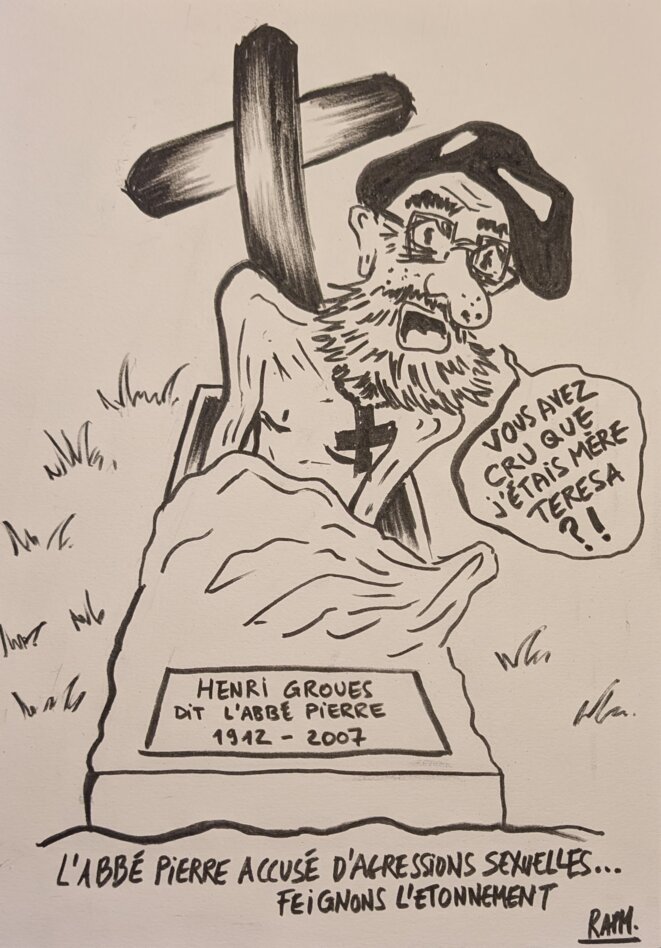 VOUS AVEZ
CRU QUE
j'ÉTAIS MÈRE
TERESA
?!
HENRI GROUES
DiT L'ABBÉ PiERRE
1912 - 2007
L'ABBÉ PiERRE ACCUSÉ D'AGRESSiONS SEXUELLES...
FEiGNONS L'ETONNEMENT